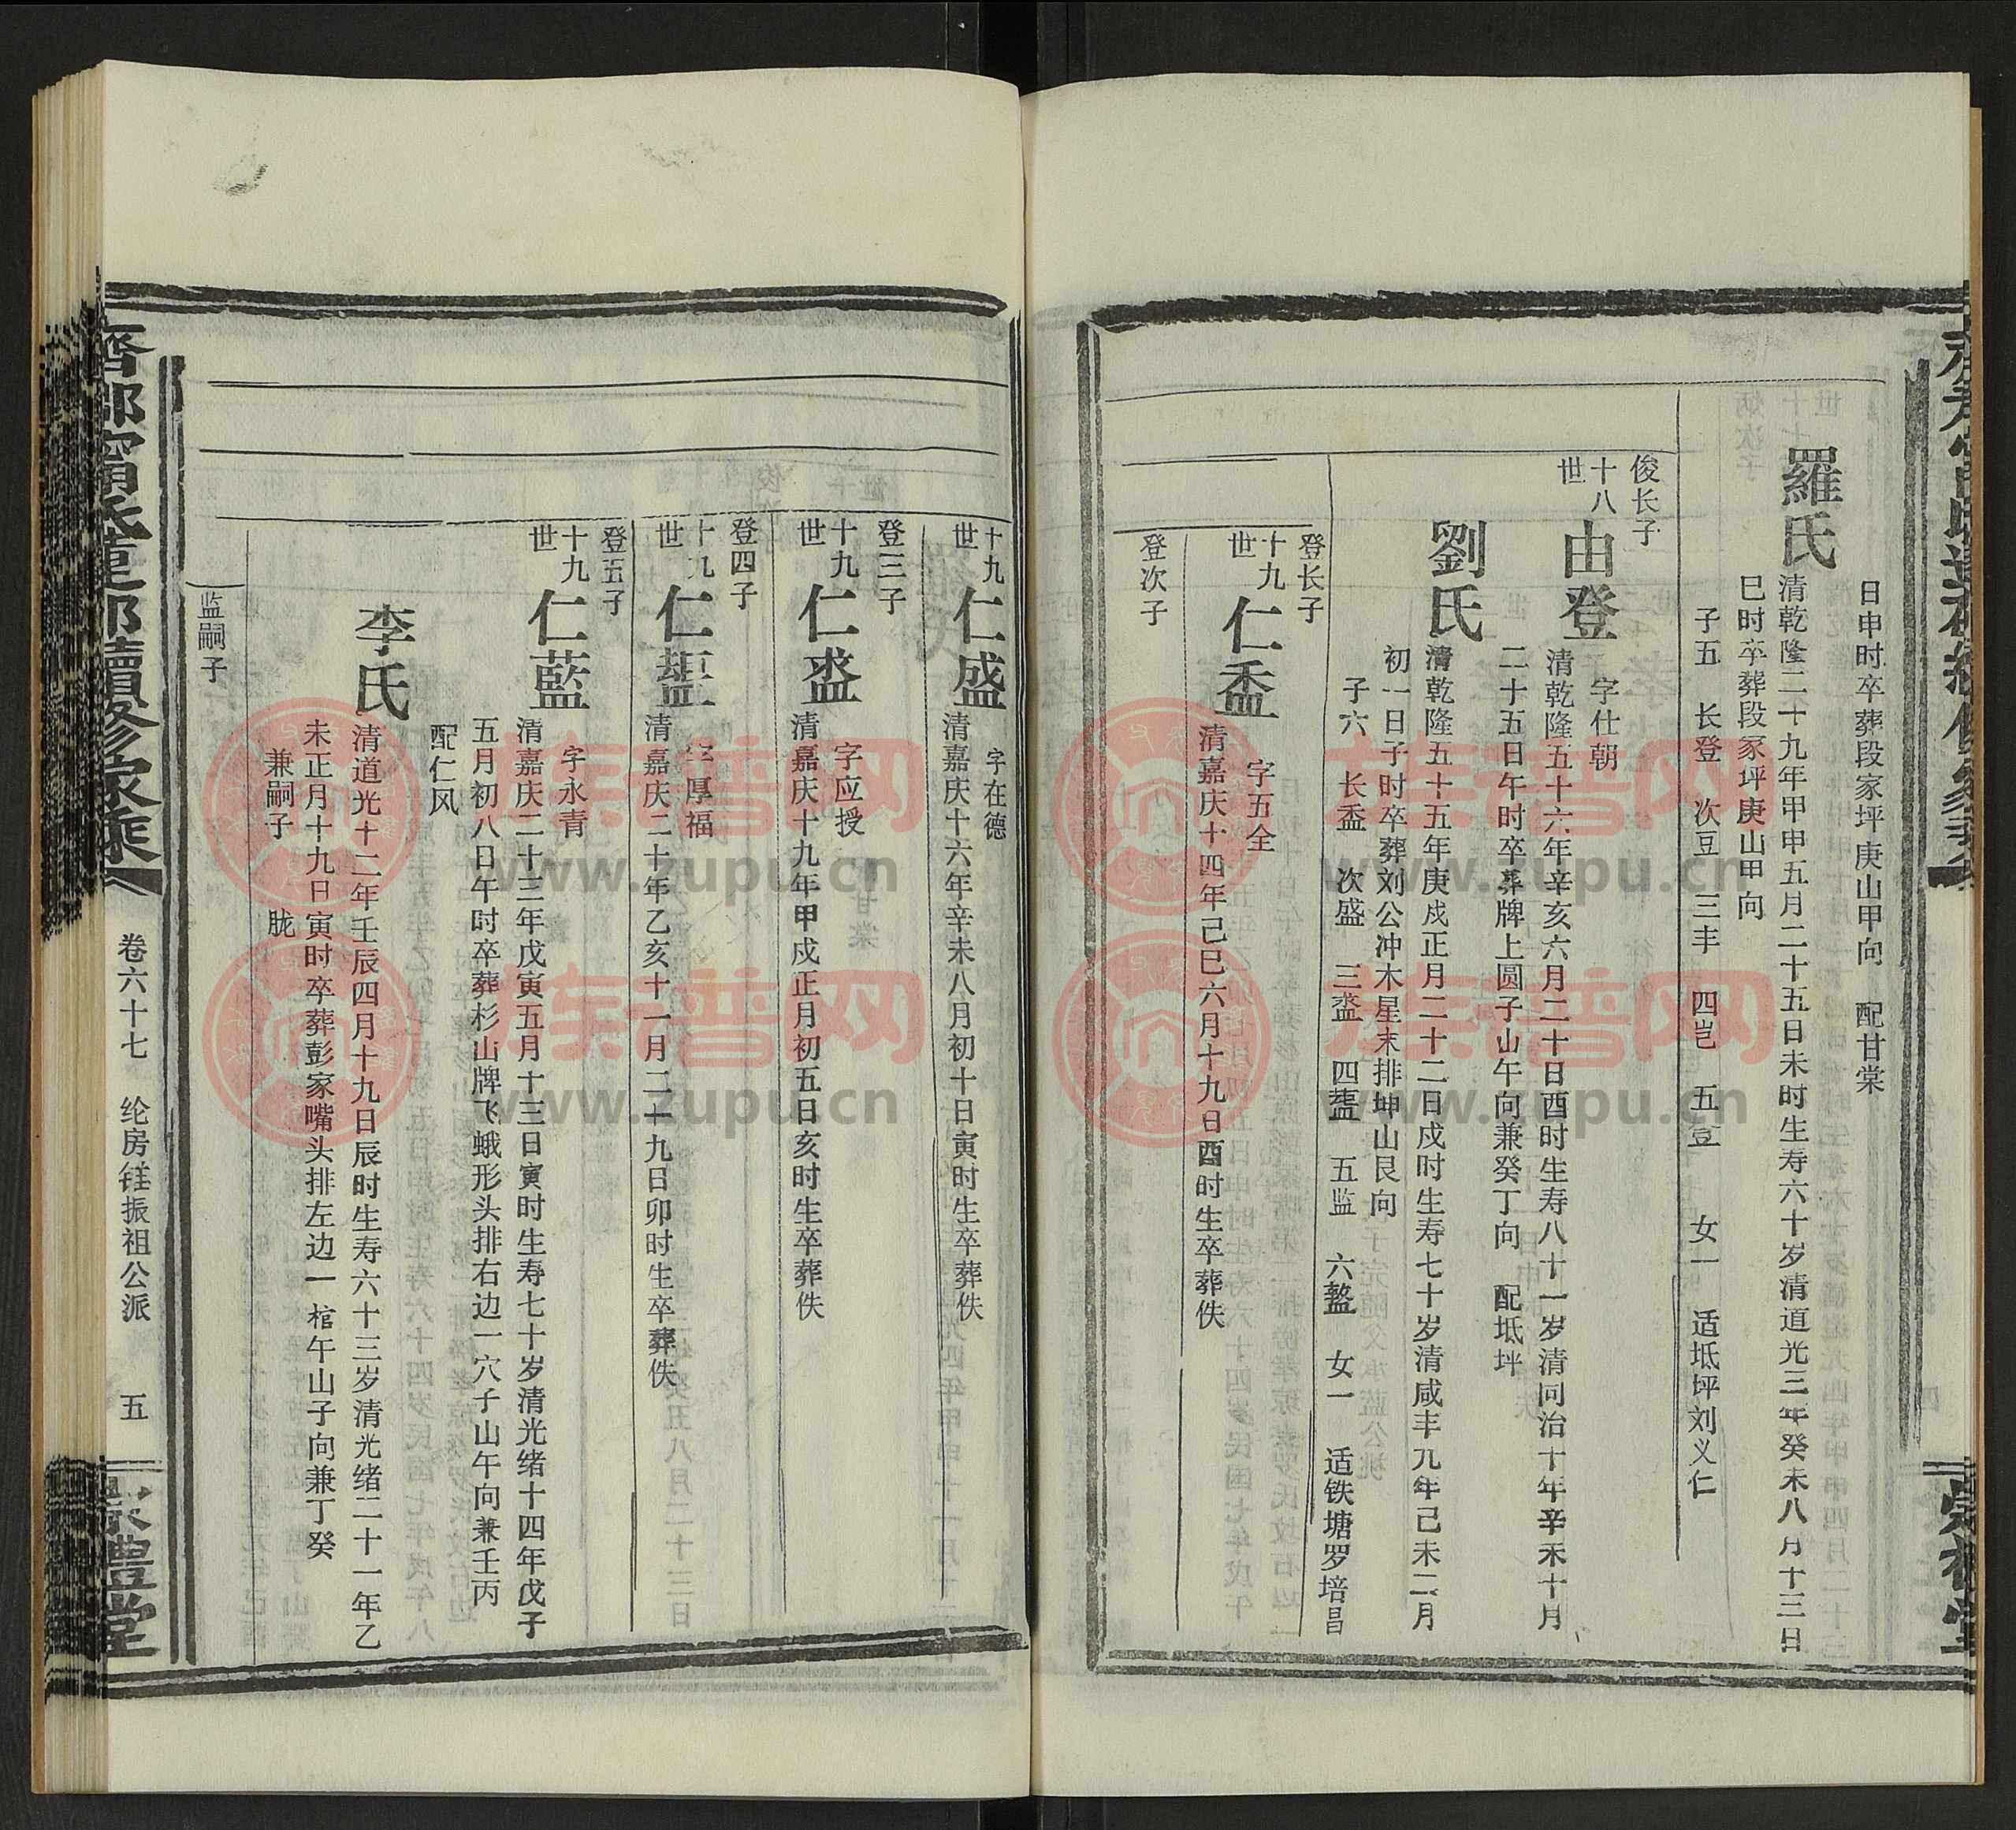 日申时卒葬段家坪庚山甲向 配甘棠
羅氏
清乾隆二十九年甲申五月二十五日未时生寿六十岁清道光三年癸未八月十三日
巳时卒葬段家坪庚山甲向
子五 长登 次豆 三丰 四岂 五豈 女一 适坻坪刘义仁
俊长子
十八
世
由登
字仕朝
清乾隆五十六年辛亥六月二十日酉时生寿八十一岁清同治十年辛未十月
二十五日午时卒葬牌上圆子山午向兼癸丁向 配坻坪
劉氏
清乾隆五十五年庚戍正月二十二日戍时生寿七十岁清咸丰九年己未二月
初一日子时卒葬刘公冲木星末排坤山艮向
子六 长盉 次盛 三盗 四藍 五监 六盩 女一 适铁塘罗培昌
登长子
十九
世
仁盉
字五全
清嘉庆十四年己巳六月十九日酉时生卒葬佚
登次子
十九
世
仁盛
字在德
清嘉庆十六年辛未八月初十日寅时生卒葬佚
登三子
十九
世
仁盗
字应授
清嘉庆十九年甲戍正月初五日亥时生卒葬佚
登四子
十九
世
仁
字厚福
清嘉庆二十年乙亥十一月二十九日卯时生卒葬佚
登五子
十九
世
仁藍
字永青
清嘉庆二十三年戊寅五月十三日寅时生寿七十岁清光绪十四年戊子
五月初八日午时卒葬杉山牌飞蛾形头排右边一穴子山午向兼壬丙
配仁风
李氏
清道光十二年壬辰四月十九日辰时生寿六十三岁清光绪二十一年乙
未正月十九日寅时卒葬彭家嘴头排左边一棺午山子向兼丁癸
兼嗣子 胧
监嗣子
齊郡甯氏蓮邵續修家乘
卷六十七 纶房鉎振祖公派 五
崇禮堂
族谱网
www.zupu.cn